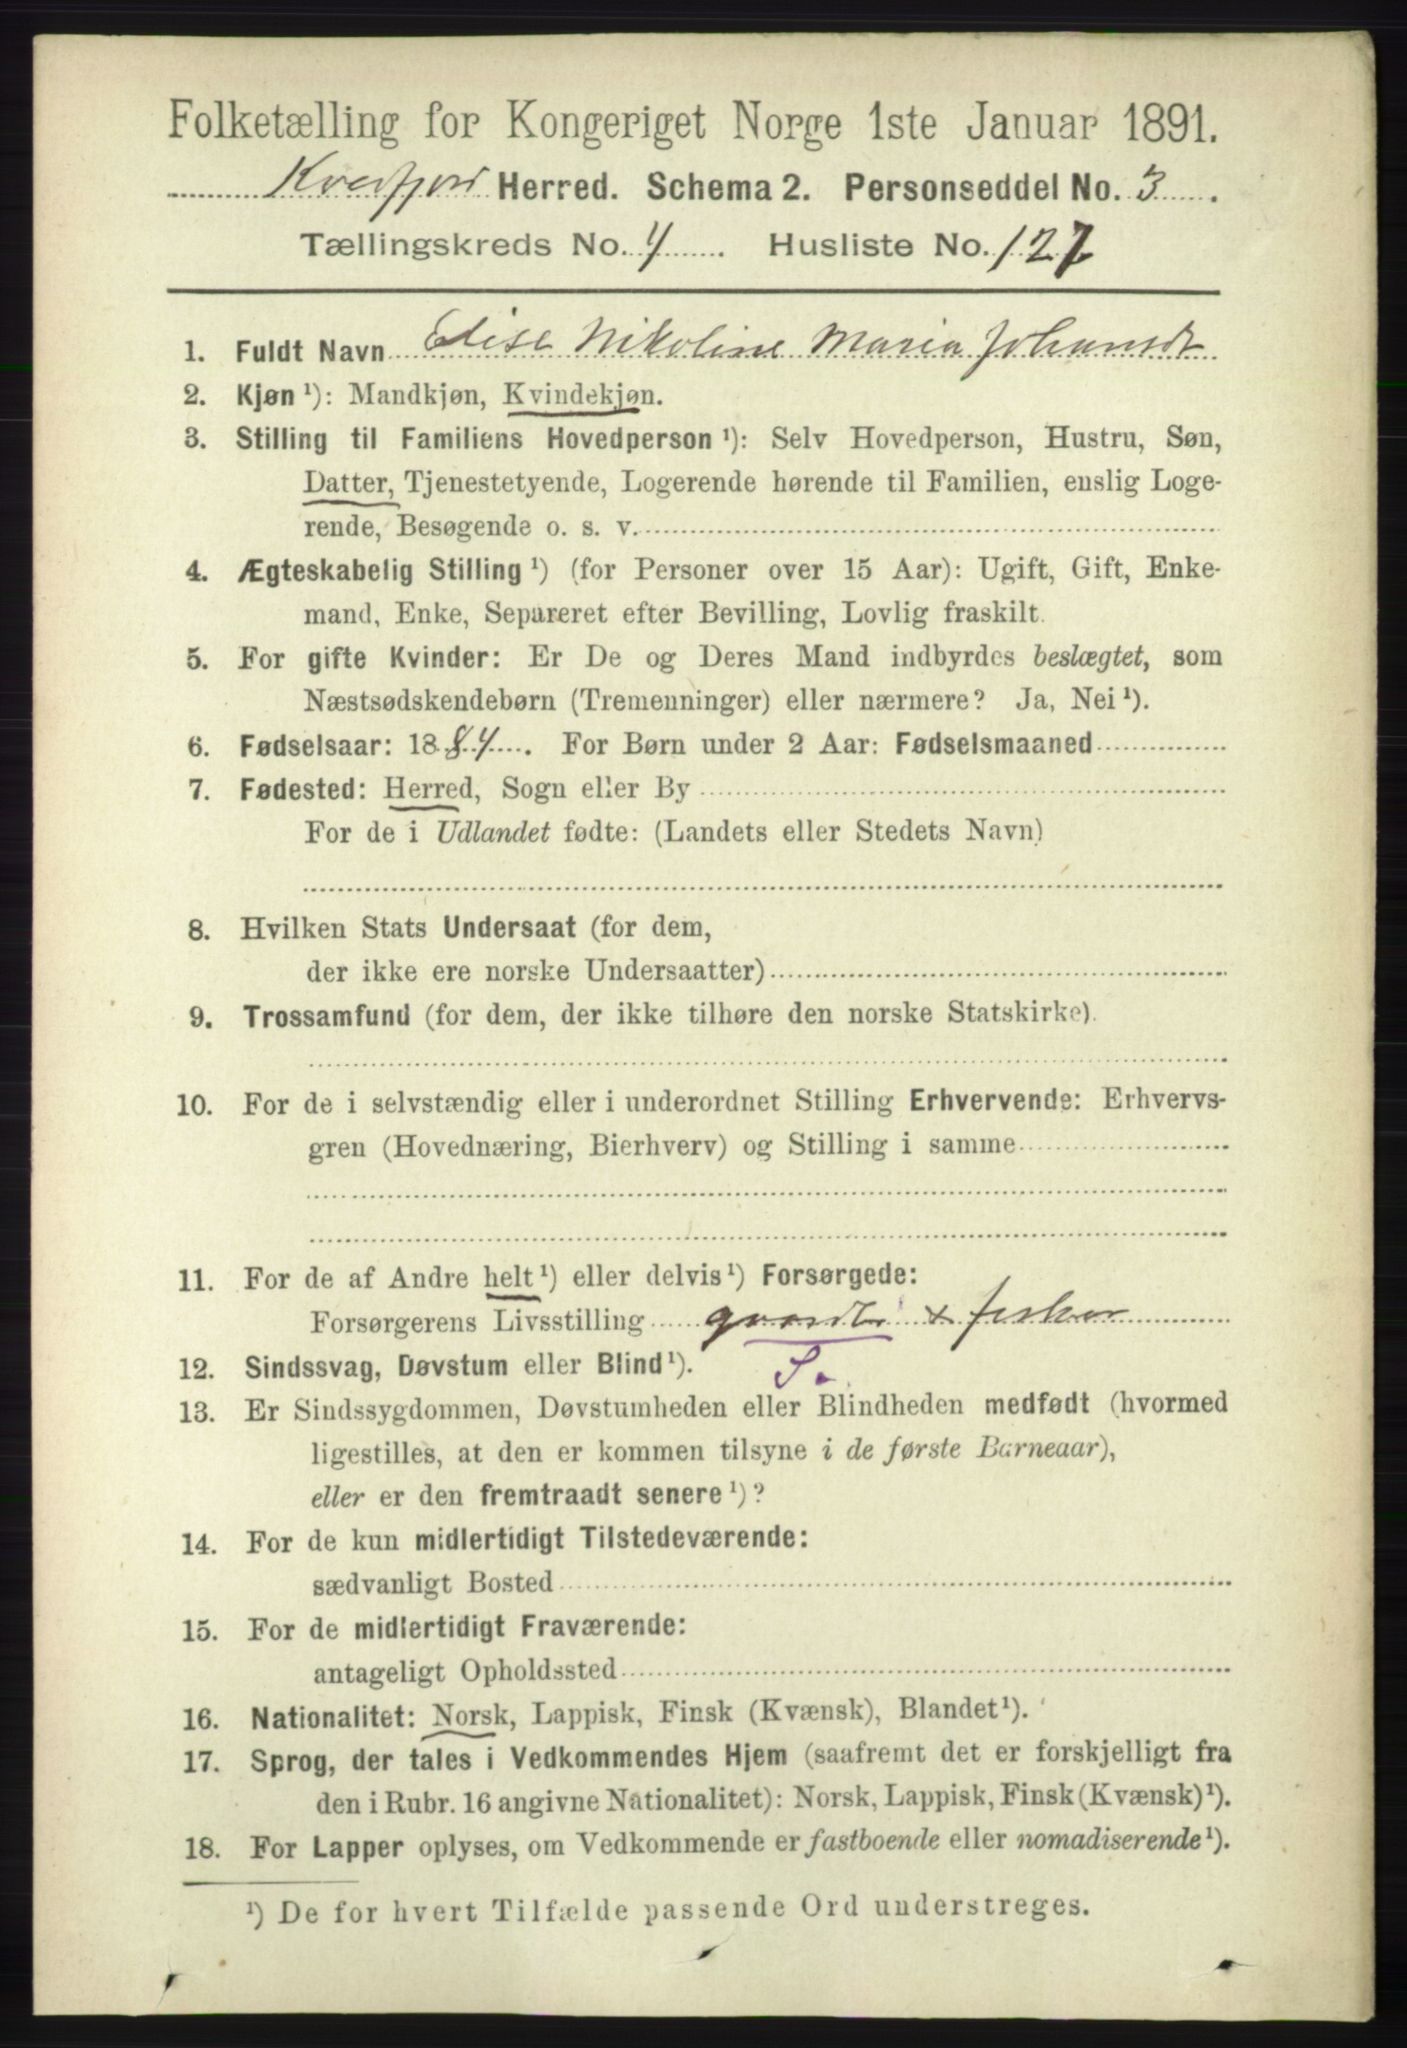 Folketælling for Kongeriget Norge 1ste Januar 1891.
Kvedfjord Herred. Schema 2. Personseddel No. 3.
Tællingskreds No. 4. Husliste No. 127
1. Fuldt Navn Elise Nikoline Maria Johansdt
2. Kjøn ¹): Mandkjøn, Kvindekjøn.
3. Stilling til Familiens Hovedperson ¹): Selv Hovedperson, Hustru, Søn,
Datter, Tjenestetyende, Logerende hørende til Familien, enslig Loge-
rende, Besøgende o. s. v.
4. Ægteskabelig Stilling ¹) (for Personer over 15 Aar): Ugift, Gift, Enke-
mand, Enke, Separeret efter Bevilling, Lovlig fraskilt.
5. For gifte Kvinder: Er De og Deres Mand indbyrdes beslægtet, som
Næstsødskendebørn (Tremenninger) eller nærmere? Ja, Nei ¹).
6. Fødselsaar: 1884. For Børn under 2 Aar: Fødselsmaaned
7. Fødested: Herred, Sogn eller By
For de i Udlandet fødte: (Landets eller Stedets Navn)
8. Hvilken Stats Undersaat (for dem,
der ikke ere norske Undersaatter)
9. Trossamfund (for dem, der ikke tilhøre den norske Statskirke).
10. For de i selvstændig eller i underordnet Stilling Erhvervende: Erhvervs-
gren (Hovednæring, Bierhverv) og Stilling i samme
11. For de af Andre helt ¹) eller delvis ¹) Forsørgede:
Forsørgerens Livsstilling gaardbr + fisker
S.
12. Sindssvag, Døvstum eller Blind ¹).
13. Er Sindssygdommen, Døvstumheden eller Blindheden medfødt (hvormed
ligestilles, at den er kommen tilsyne i de første Barneaar),
eller er den fremtraadt senere ¹)?
14. For de kun midlertidigt Tilstedeværende:
sædvanligt Bosted
15. For de midlertidigt Fraværende:
antageligt Opholdssted
16. Nationalitet: Norsk, Lappisk, Finsk (Kvænsk), Blandet ¹).
17. Sprog, der tales i Vedkommendes Hjem (saafremt det er forskjelligt fra
den i Rubr. 16 angivne Nationalitet): Norsk, Lappisk, Finsk (Kvænsk) ¹).
18. For Lapper oplyses, om Vedkommende er fastboende eller nomadiserende ¹).
¹) De for hvert Tilfælde passende Ord understreges.